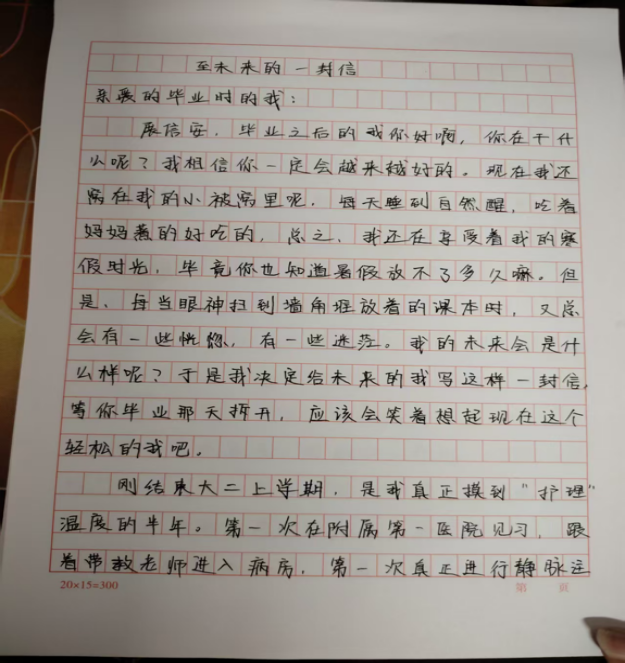 至未来的一封信
亲爱的毕业时的我：
展信安，毕业之后的我你好啊，你在干什
么呢？我相信你一定会越来越好的。现在我还
窝在我的小被窝里呢，每天睡到自然醒，吃着
妈妈煮的好吃的，总之，我还在享受着我的寒
假时光，毕竟你也知道暑假放不了多久嘛。但
是，每当眼神扫到墙角堆放着的课本时，又总
会有一些恍惚，有一些迷茫。我的未来会是什
么样呢？于是我决定给未来的我写这样一封信，
等你毕业那天拆开，应该会笑着想起现在这个
轻松的我吧。
刚结束大二上学期，是我真正摸到“护理”
温度的半年。第一次在附属第一医院见习，跟
着带教老师进入病房，第一次真正进行静脉运
20×15=300 第 页